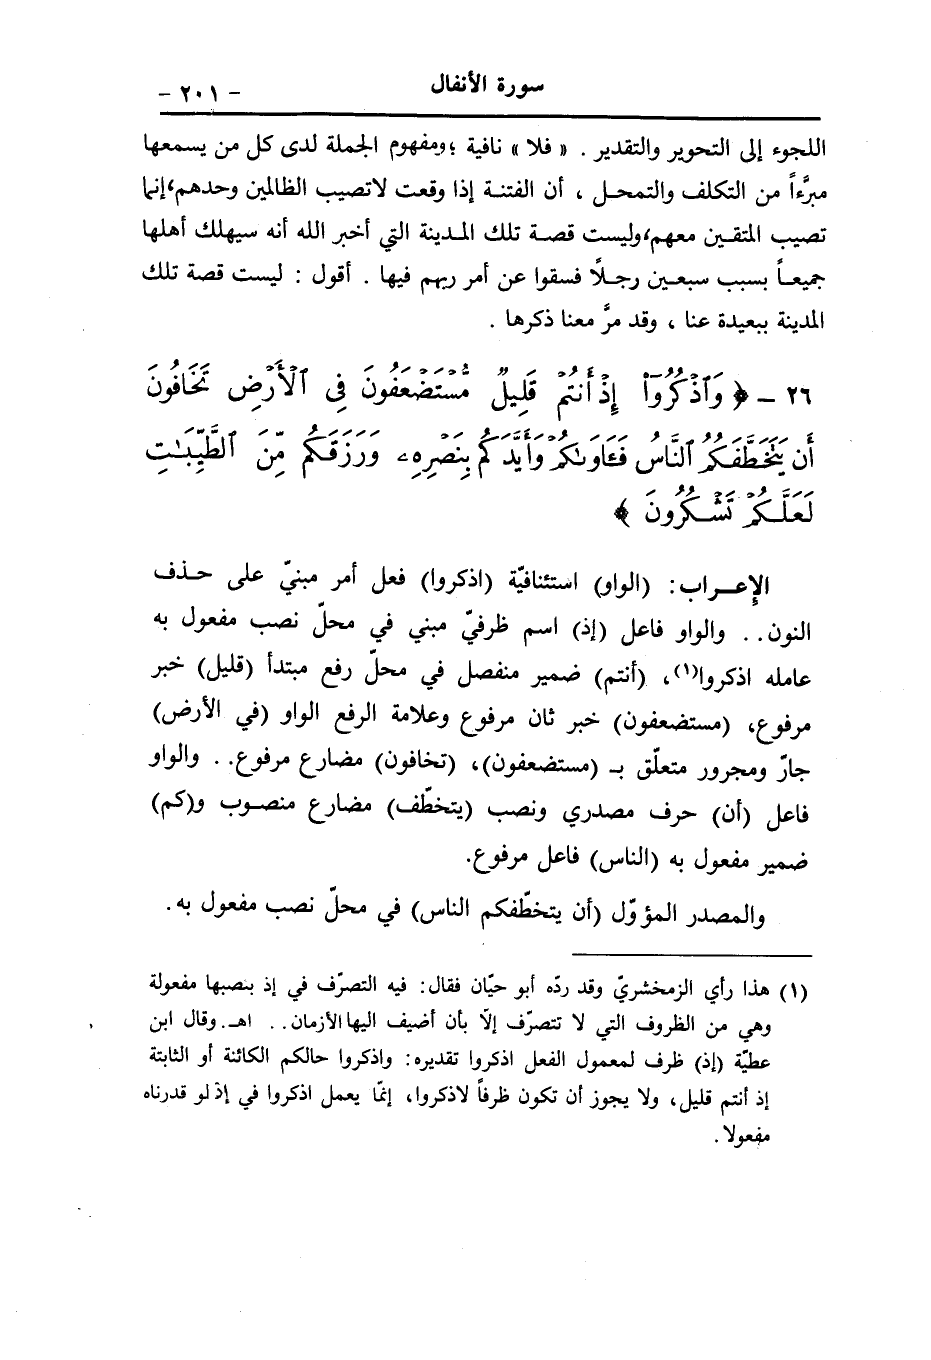 سورة الأنفال
- ٢٠١ -
اللجوء إلى التحوير والتقدير . « فلا » نافية ؛ومفهوم الجملة لدى كل من يسمعها
مبرَّءاً من التكلف والتمحل ، أن الفتنة إذا وقعت لاتصيب الظالمين وحدهم،إنما
تصيب المتقين معهم،وليست قصة تلك المدينة التي أخبر الله أنه سيهلك أهلها
جميعاً بسبب سبعين رجلًا فسقوا عن أمر ربهم فيها . أقول : ليست قصة تلك
المدينة ببعيدة عنا ، وقد مرَّ معنا ذكرها .
٢٦ - ﴿ وَٱذْكُرُوٓاْ إِذْ أَنتُمْ قَلِيلٌ مُّسْتَضْعَفُونَ فِى ٱلْأَرْضِ تَخَافُونَ
أَن يَتَخَطَّفَكُمُ ٱلنَّاسُ فَـَٔاوَىٰكُمْ وَأَيَّدَكُم بِنَصْرِهِۦ وَرَزَقَكُم مِّنَ ٱلطَّيِّبَـٰتِ
لَعَلَّكُمْ تَشْكُرُونَ ﴾
الإعـراب: (الواو) استئنافيّة (اذكروا) فعل أمر مبنيّ على حذف
النون.. والواو فاعل (إذ) اسم ظرفيّ مبني في محلّ نصب مفعول به
عامله اذكروا(١)، (أنتم) ضمير منفصل في محلّ رفع مبتدأ (قليل) خبر
مرفوع، (مستضعفون) خبر ثان مرفوع وعلامة الرفع الواو (في الأرض)
جارّ ومجرور متعلّق بـ (مستضعفون)، (تخافون) مضارع مرفوع.. والواو
فاعل (أن) حرف مصدري ونصب (يتخطّف) مضارع منصوب و(كم)
ضمير مفعول به (الناس) فاعل مرفوع.
والمصدر المؤوّل (أن يتخطّفكم الناس) في محلّ نصب مفعول به.
(١) هذا رأي الزمخشريّ وقد ردّه أبو حيّان فقال: فيه التصرّف في إذ بنصبها مفعولة
وهي من الظروف التي لا تتصرّف إلّا بأن أضيف اليها الأزمان.. اهـ. وقال ابن
عطيّة (إذ) ظرف لمعمول الفعل اذكروا تقديره: واذكروا حالكم الكائنة أو الثابتة
إذ أنتم قليل، ولا يجوز أن تكون ظرفاً لاذكروا، إنمّا يعمل اذكروا في إذ لو قدرناه
مفعولا.